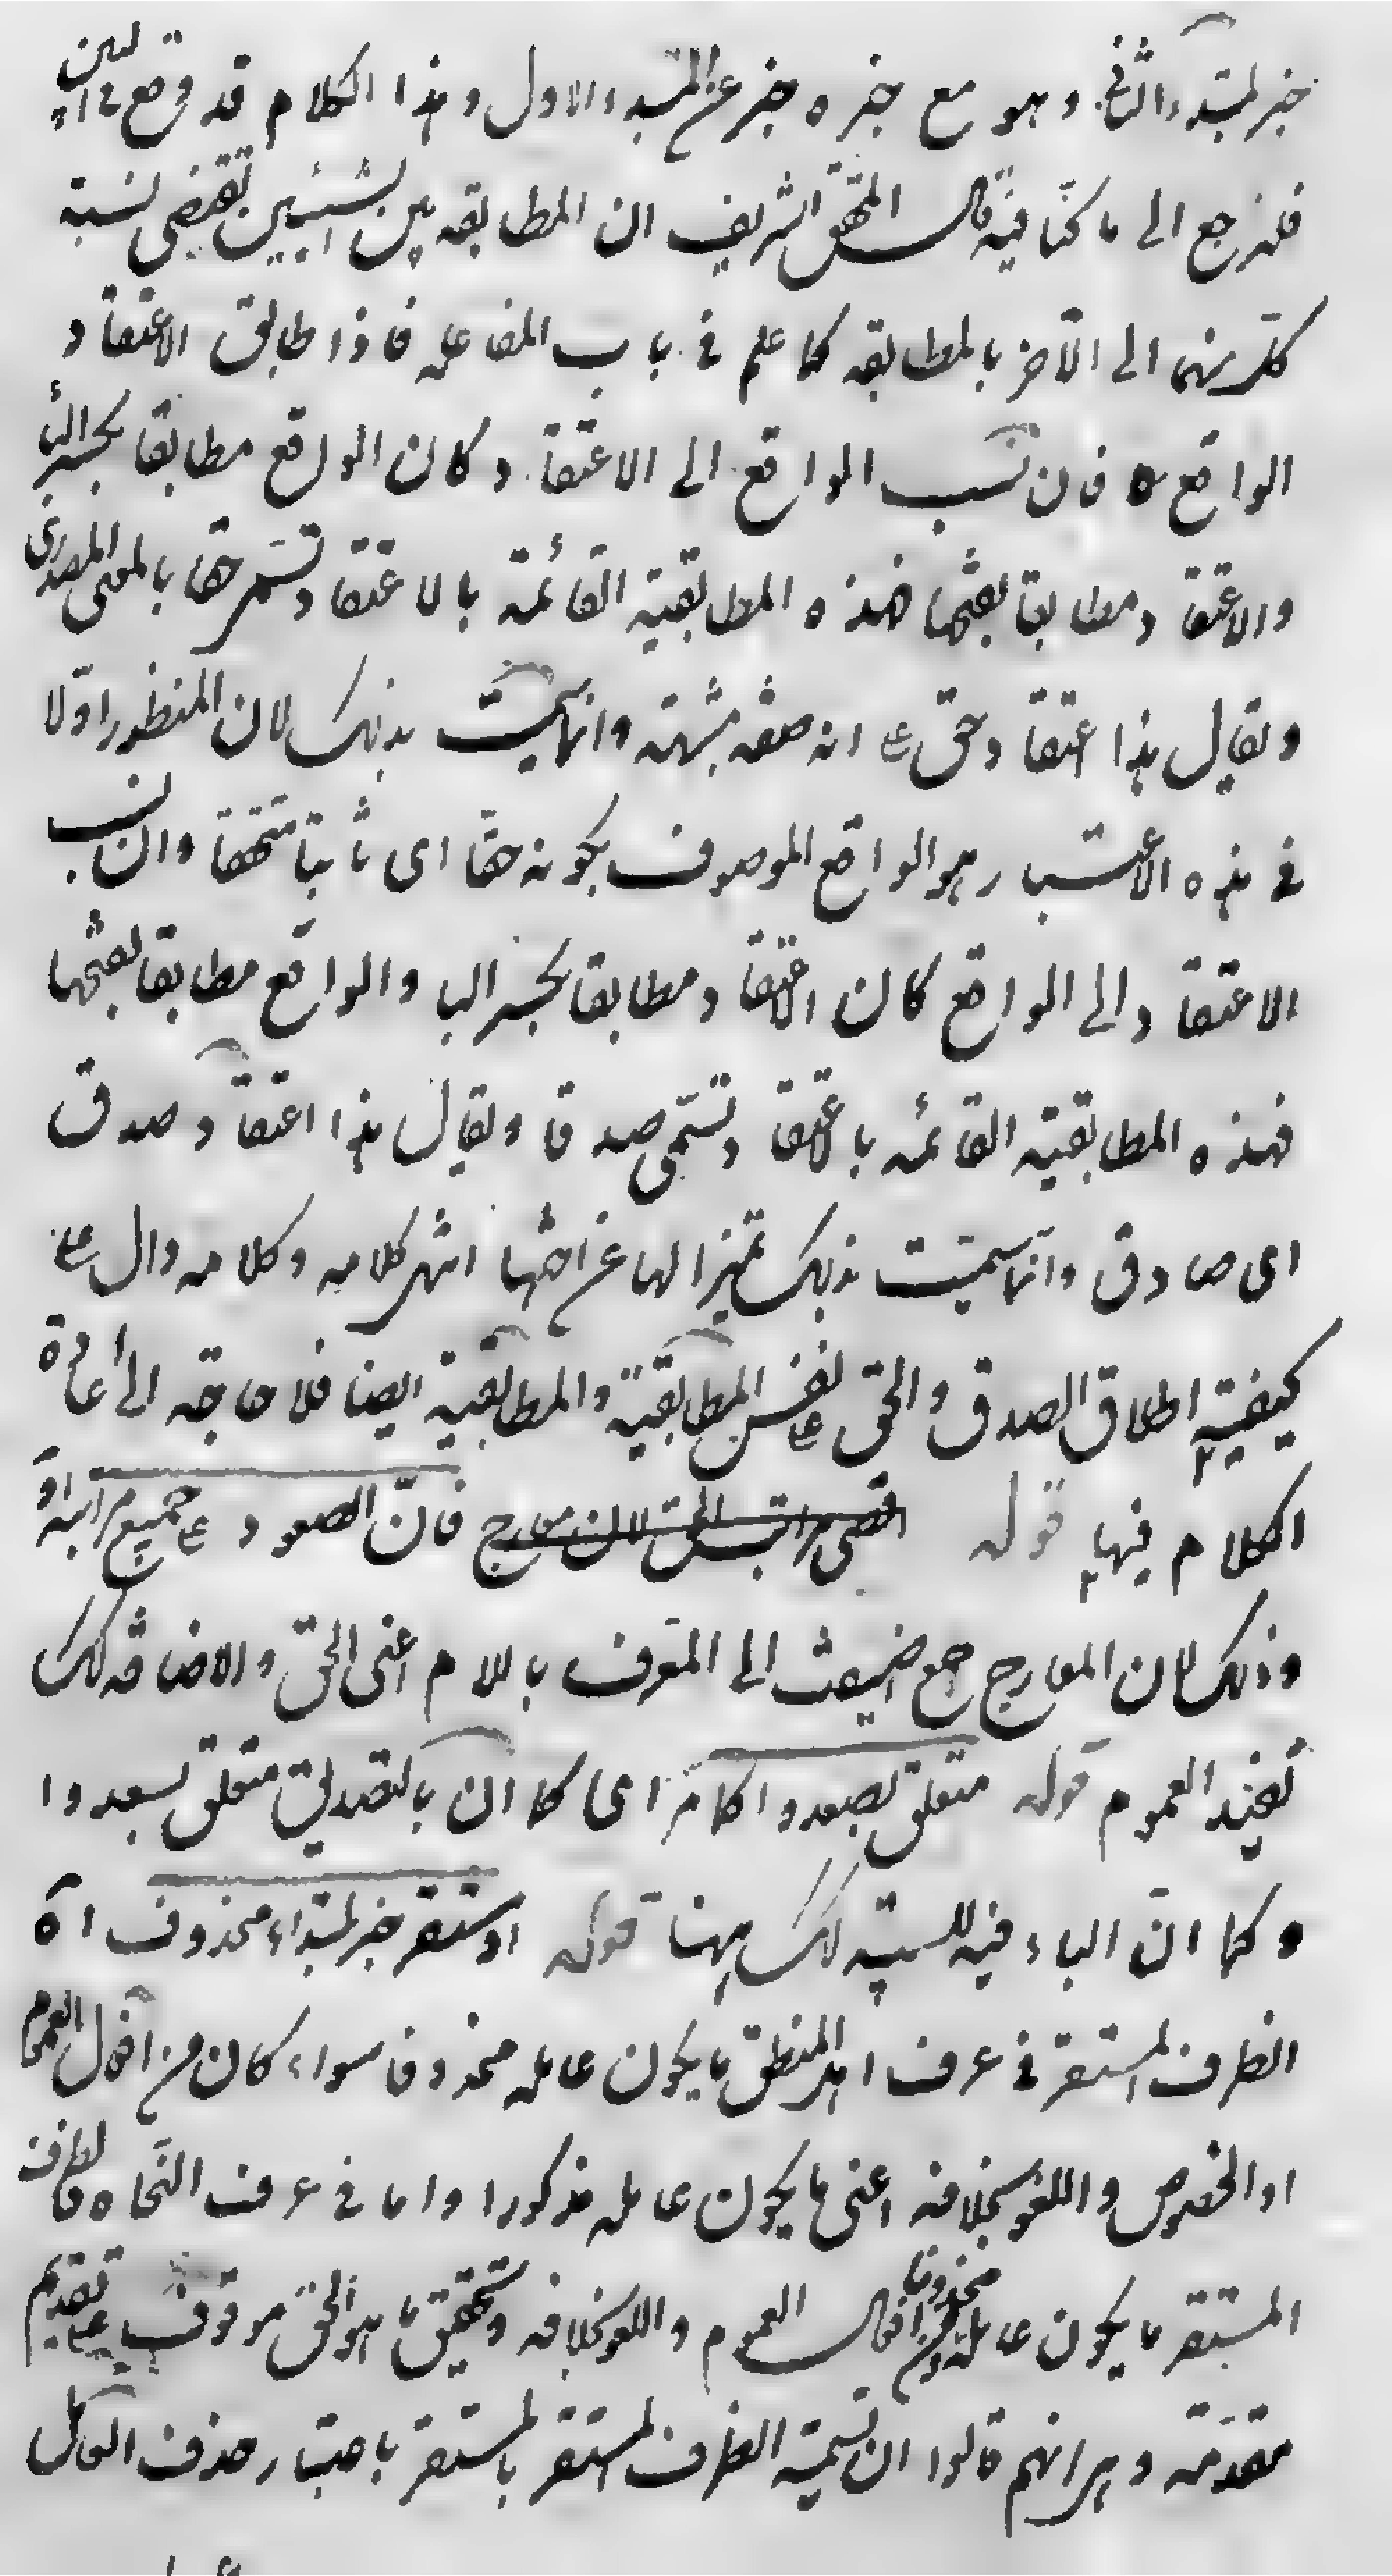 خبر لمبتداء الثانى وهو مع خبره خبر عن المبتداء الاول وهذا الكلام قد وقع فى البين
فلنرجع الى ما كنا فيه قال المحقق الشريف ان المطابقه بين الشيئين تقتضى نسبة
كل منهما الى الآخر بالمطابقه كما علم فى باب المفاعله فاذا طابق الاعتقاد
الواقع فان نسب الواقع الى الاعتقاد كان الواقع مطابقا بكسر الباء
والاعتقاد مطابقا بفتحها فهذه المطابقية القائمة بالاعتقاد تسمى حقا بالمعنى المصدرى
ويقال هذا اعتقاد حق ع انه صفه مشبهة وانما سميت بذلك لان المنظور اولا
فى هذه الاعتبار هو الواقع الموصوف بكونه حقا اى ثابتا متحققا وان نسب
الاعتقاد الى الواقع كان الاعتقاد مطابقا بكسر البا والواقع مطابقا بفتحها
فهذه المطابقية القائمه بالاعتقاد تسمى صدقا ويقال هذا اعتقاد صدق
اى صادق وانما سميت بذلك تميزا لها عن اختها انتهى كلامه وكلامه دال ع
كيفية اطلاق الصدق والحق ع نفس المطابقية والمطابقية ايضا فلا حاجة الى اعادة
الكلام فيها قوله اقصى مراتب الحق لان معارج فان الصعود ع جميع مراتبه اه
وذلك لان المعارج جمع اضيفت الى المعرف باللام اعنى الحق والاضافه كك
تفيد العموم قوله متعلق بصعدوا كما مر اى كما ان بالتصديق متعلق بسعدوا
وكما ان الباء فيه للسببيه كك ههنا قوله او مستقر خبر لمبتداء محذوف اه
الظرف المستقر فى عرف اهل المنطق ما يكون عامله محذوفا سواء كان من افعال العموم
او الخصوص واللغو بخلافه اعنى ما يكون عامله مذكورا واما فى عرف النحاه فالظرف
المستقر ما يكون عامله محذوفا من افعال العموم واللغو بخلافه وتحقيق ما هو الحق موقوف ع تقديم
مقدمة وهى انهم قالوا ان تسمية الظرف المستقر بالمستقر باعتبار حذف العامل